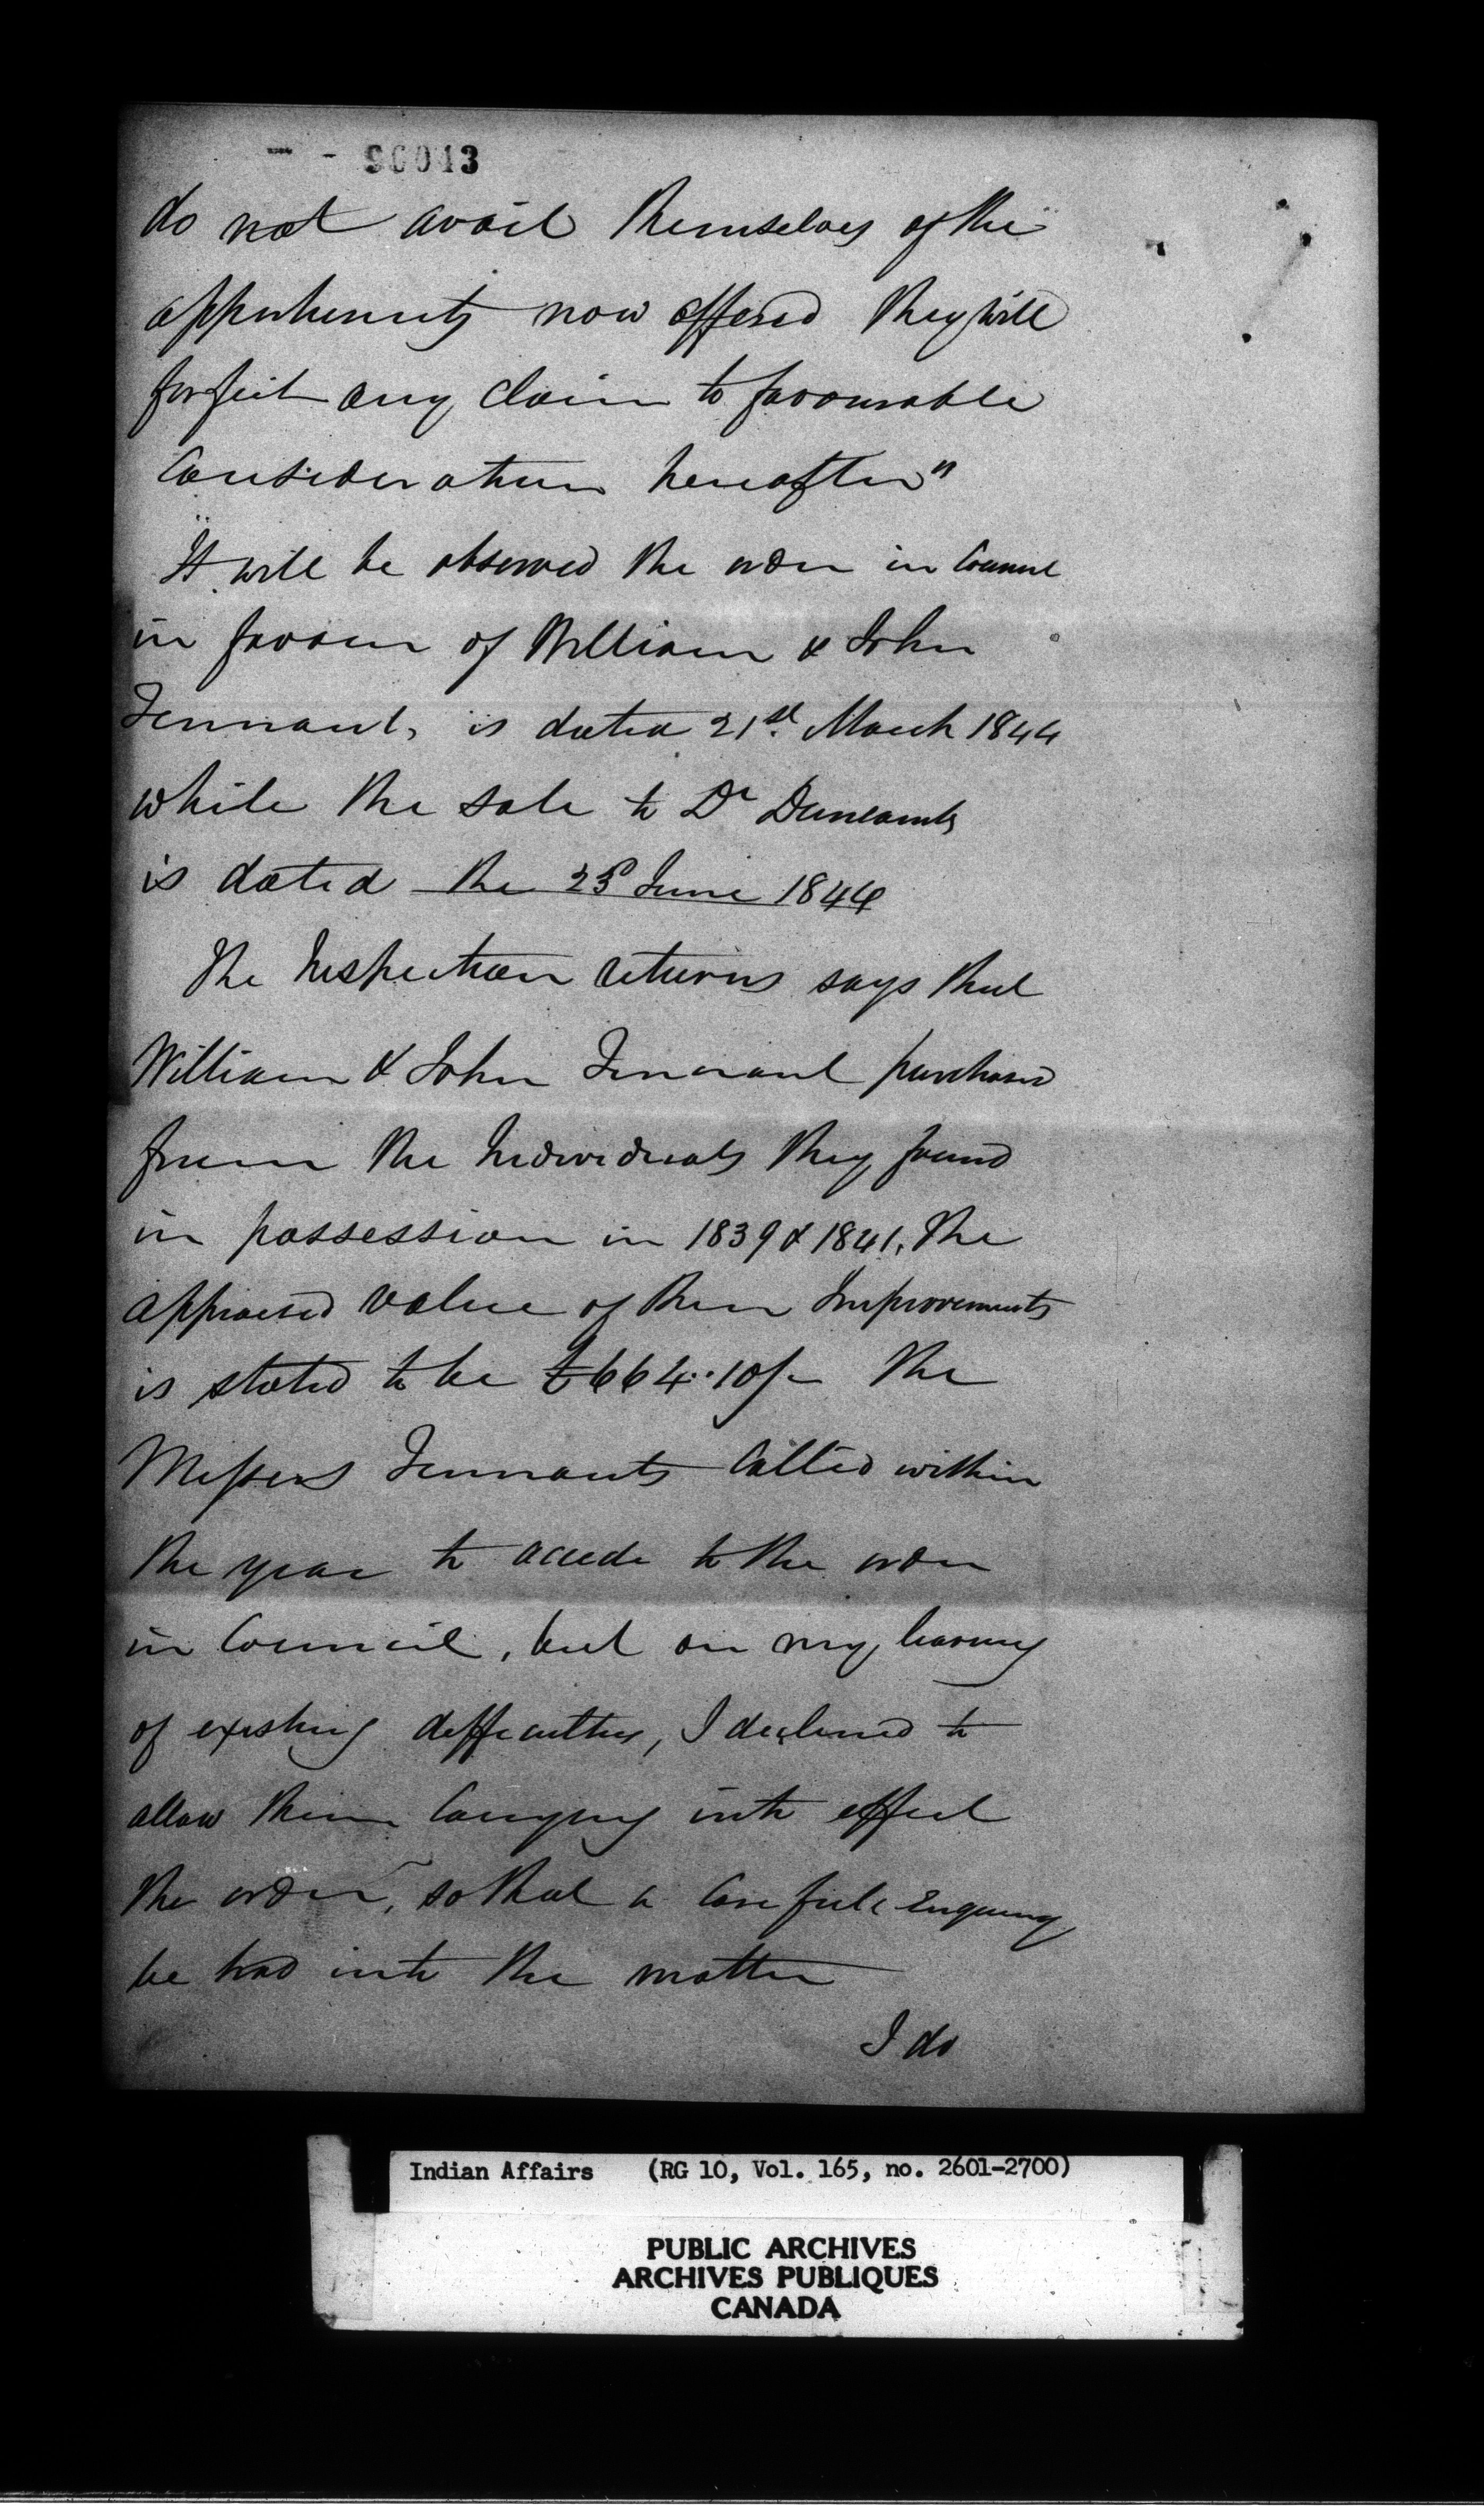 - - 96043
do not avail themselves of the
opportunity now offered they will
forfeit any claim to favourable
Consideration hereafter"
It will be observed the order in Council
in favour of William & John
Tennant, is dated 21st March 1844
while the sale to Dr Duncomb
is dated the 23d June 1844
The Inspection returns says that
William & John Tennant purchased
from the Individuals they found
in possession in 1839 & 1841, the
appraised value of their Improvements
is stated to be £664..10/- The
Messers Tennants Called within
the year to accede to the order
in Council, but on my learning
of existing difficulties, I declined to
allow them Carrying into effect
the order, so that a Carefull Enquiry
be had into the matter
I do
Indian Affairs (RG 10, Vol. 165, no. 2601-2700)
PUBLIC ARCHIVES
ARCHIVES PUBLIQUES
CANADA